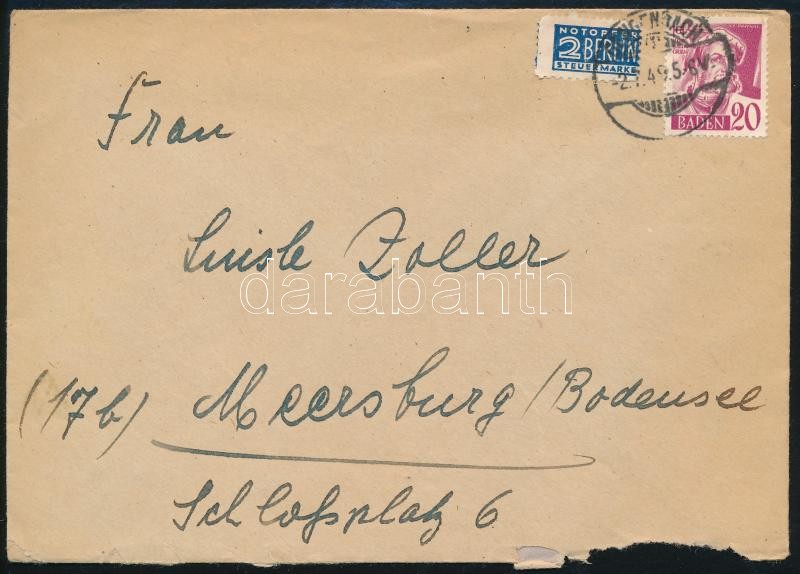 NOTOPFER
2 BERLIN
STEUERMARKE
GENBACH
-2.7.49.5-6V
BADEN 20
Frau
Luisle Zoller
darabanth
(17b) Meersburg/Bodensee
Schloßplatz 6